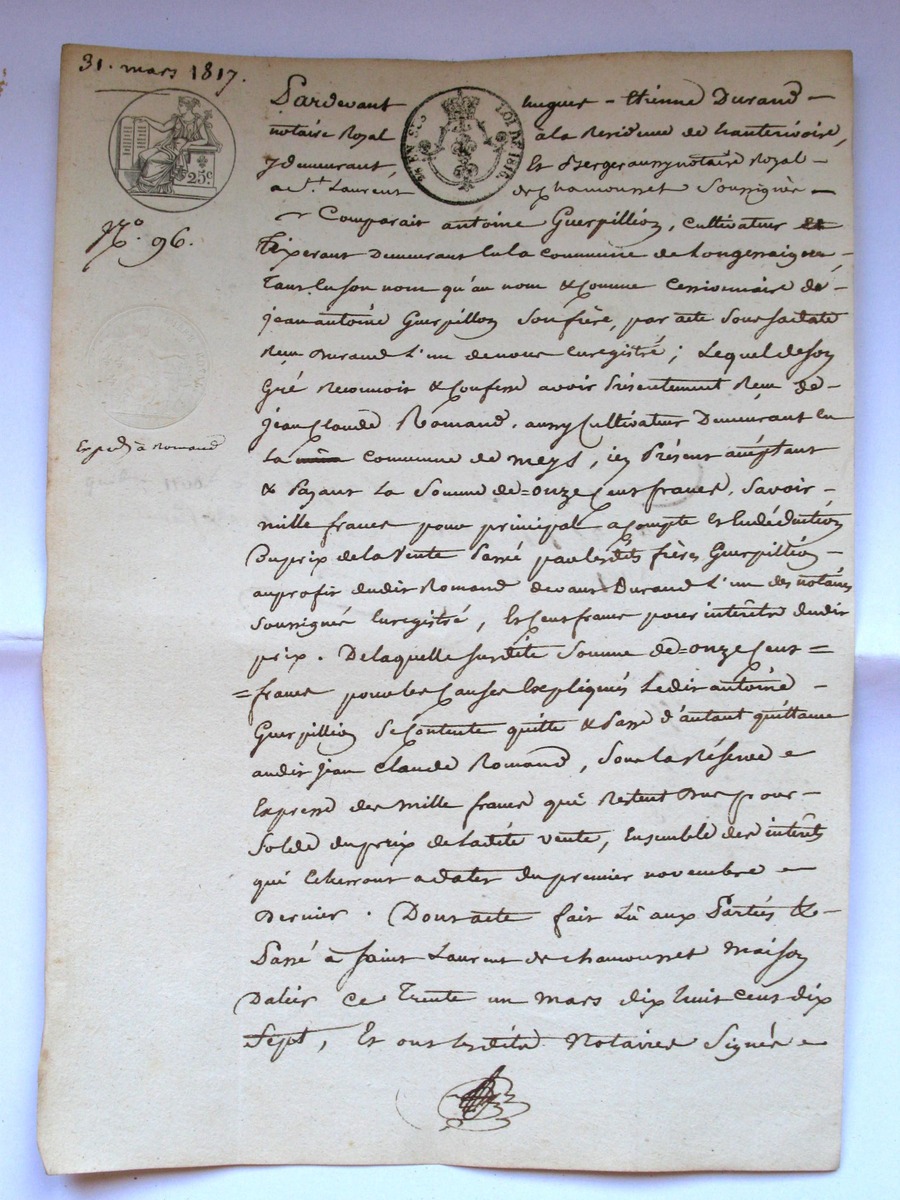 31. mars 1817.
Pardevant hugues - Etienne Durand -
notaire Royal a la Residence de hauterivoire,
y demeurant, Et Berger aussy notaire Royal -
a St. Laurent de Chamousset Soussignés -
25c.
LOI DE 1816
No. 96.
Comparait antoine Guerpillion, Cultivateur et
Tixerant Demeurant en la commune de Longessaigne
Tant en Son nom qu'au nom & Comme Cessionnaire de
jean antoine Guerpillon Son frère, par acte Sous sa date
Reçu Durand L'un de nous Enregistré; Lequel de Son
Gré Reconnoit & Confesse avoir Présentement Reçu de
jean Claude Romand, aussy Cultivateur Demeurant en
Expedié à Romand
La commune de meys, icy Présent acceptant
& Payant La Somme de = onze Cent francs, Savoir -
mille francs pour principal a compte et En déduction
Du prix de la Vente Passé par lesdits frères Guerpillion -
au profit dudit Romand devant Durand L'un des notaires
Soussignés Enregistré, Et Cent francs pour intérêts dudit
prix. De laquelle Susdite Somme de = onze Cent =
= francs pour les Causes Expliqués Ledit antoine -
Guerpillion Se Contente quitte & Passe d'autant quittance
audit jean Claude Romand, Sous la Réserve
Expresse des mille francs qui Restent Dus pour -
Solde du prix de Ladite vente, Ensemble des intérêts
qui Echerront a dater du premier novembre
Dernier. Dont acte fait Lu aux Parties &
Passé à Saint Laurent de chamousset maison
Dalier ce Trente un mars dix huit cent dix
Sept, Et ont lesdits Notaires Signés